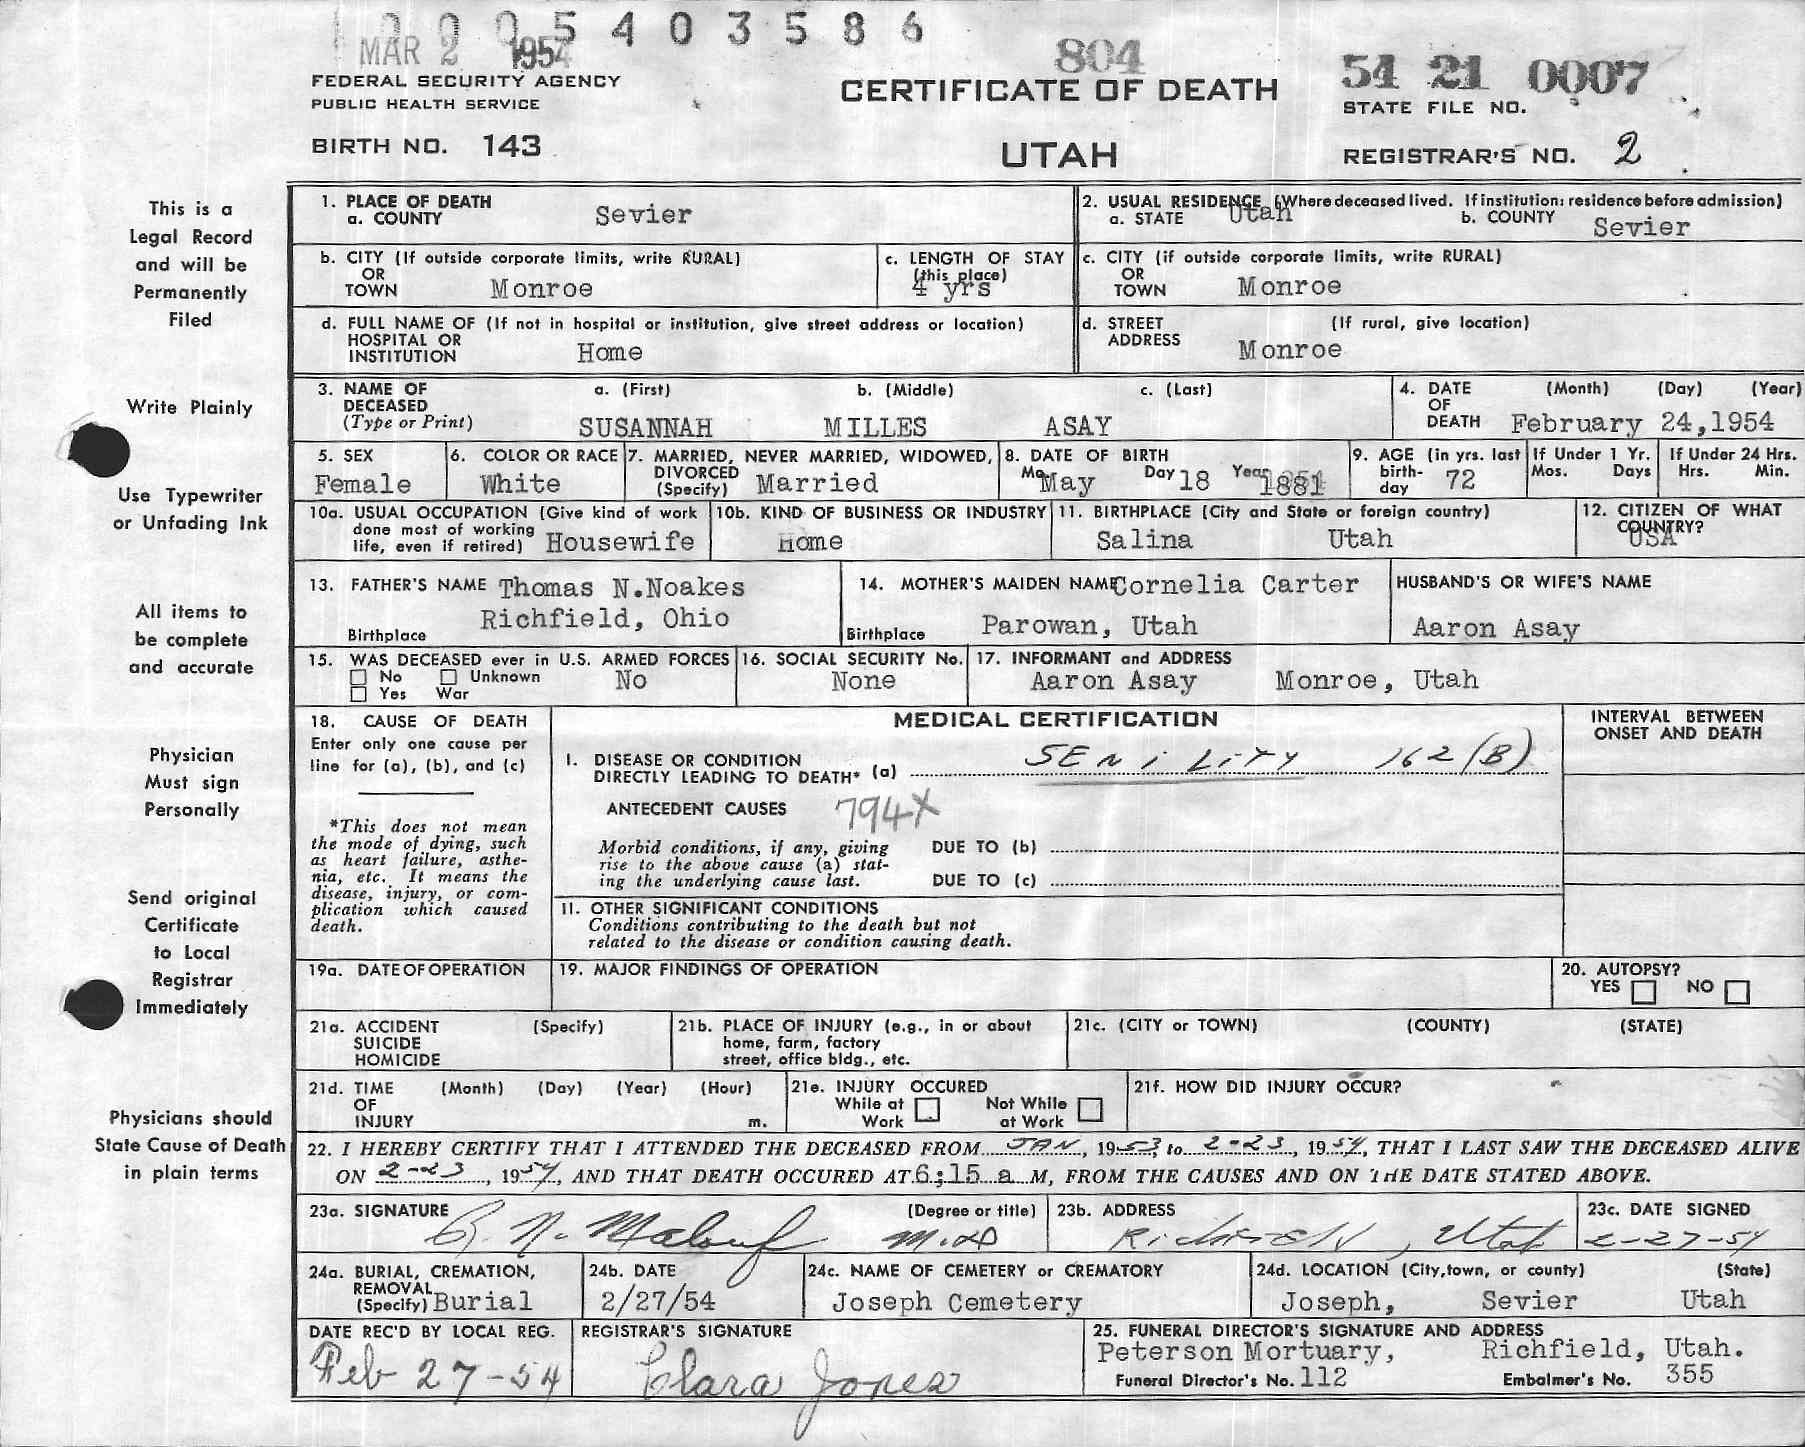 5 4 0 3 5 8 6
MAR 2 1954
804
54 21 0007
FEDERAL SECURITY AGENCY
PUBLIC HEALTH SERVICE
CERTIFICATE OF DEATH
STATE FILE NO.
BIRTH NO. 143
UTAH
REGISTRAR'S NO. 2
This is a
Legal Record
and will be
Permanently
Filed
Write Plainly
Use Typewriter
or Unfading Ink
All items to
be complete
and accurate
Physician
Must sign
Personally
Send original
Certificate
to Local
Registrar
Immediately
Physicians should
State Cause of Death
in plain terms
1. PLACE OF DEATH
a. COUNTY Sevier
2. USUAL RESIDENCE (Where deceased lived. If institution: residence before admission)
a. STATE Utah b. COUNTY Sevier
b. CITY (If outside corporate limits, write RURAL)
OR
TOWN Monroe
c. LENGTH OF STAY
(this place)
4 yrs
c. CITY (if outside corporate limits, write RURAL)
OR
TOWN Monroe
d. FULL NAME OF (If not in hospital or institution, give street address or location)
HOSPITAL OR
INSTITUTION Home
d. STREET (If rural, give location)
ADDRESS
Monroe
3. NAME OF a. (First) b. (Middle) c. (Last)
DECEASED
(Type or Print) SUSANNAH MILLES ASAY
4. DATE (Month) (Day) (Year)
OF
DEATH February 24,1954
5. SEX
Female
6. COLOR OR RACE
White
7. MARRIED, NEVER MARRIED, WIDOWED,
DIVORCED
(Specify) Married
8. DATE OF BIRTH
Mo. May Day 18 Year 1881
9. AGE (in yrs. last
birth-
day 72
If Under 1 Yr.
Mos. Days
If Under 24 Hrs.
Hrs. Min.
10a. USUAL OCCUPATION (Give kind of work
done most of working
life, even if retired) Housewife
10b. KIND OF BUSINESS OR INDUSTRY
Home
11. BIRTHPLACE (City and State or foreign country)
Salina Utah
12. CITIZEN OF WHAT
COUNTRY?
USA
13. FATHER'S NAME Thomas N.Noakes
Birthplace Richfield, Ohio
14. MOTHER'S MAIDEN NAME Cornelia Carter
Birthplace Parowan, Utah
HUSBAND'S OR WIFE'S NAME
Aaron Asay
15. WAS DECEASED ever in U.S. ARMED FORCES
No Unknown No
Yes War
16. SOCIAL SECURITY No.
None
17. INFORMANT and ADDRESS
Aaron Asay Monroe, Utah
18. CAUSE OF DEATH
Enter only one cause per
line for (a), (b), and (c)
*This does not mean
the mode of dying, such
as heart failure, asthe-
nia, etc. It means the
disease, injury, or com-
plication which caused
death.
MEDICAL CERTIFICATION
INTERVAL BETWEEN
ONSET AND DEATH
I. DISEASE OR CONDITION
DIRECTLY LEADING TO DEATH* (a) SENiLiTY 162 (B)
ANTECEDENT CAUSES 794X
Morbid conditions, if any, giving DUE TO (b)
rise to the above cause (a) stat-
ing the underlying cause last. DUE TO (c)
11. OTHER SIGNIFICANT CONDITIONS
Conditions contributing to the death but not
related to the disease or condition causing death.
19a. DATE OF OPERATION
19. MAJOR FINDINGS OF OPERATION
20. AUTOPSY?
YES NO
21a. ACCIDENT (Specify)
SUICIDE
HOMICIDE
21b. PLACE OF INJURY (e.g., in or about
home, farm, factory
street, office bldg., etc.
21c. (CITY or TOWN) (COUNTY) (STATE)
21d. TIME (Month) (Day) (Year) (Hour)
OF
INJURY m.
21e. INJURY OCCURED
While at Not While
Work at Work
21f. HOW DID INJURY OCCUR?
22. I HEREBY CERTIFY THAT I ATTENDED THE DECEASED FROM JAN, 1953 to 2-23, 1954, THAT I LAST SAW THE DECEASED ALIVE
ON 2-23, 1954, AND THAT DEATH OCCURED AT 6:15 a M, FROM THE CAUSES AND ON THE DATE STATED ABOVE.
23a. SIGNATURE (Degree or title)
R. N. Malouf M.D
23b. ADDRESS
Richfield, Utah
23c. DATE SIGNED
2-27-54
24a. BURIAL, CREMATION,
REMOVAL
(Specify) Burial
24b. DATE
2/27/54
24c. NAME OF CEMETERY or CREMATORY
Joseph Cemetery
24d. LOCATION (City, town, or county) (State)
Joseph, Sevier Utah
DATE REC'D BY LOCAL REG.
Feb 27-54
REGISTRAR'S SIGNATURE
Clara Jones
25. FUNERAL DIRECTOR'S SIGNATURE AND ADDRESS
Peterson Mortuary, Richfield, Utah.
Funeral Director's No. 112 Embalmer's No. 355